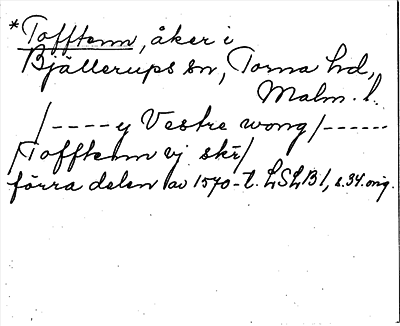 *Tofftenn, åker i
Bjällerups sn, Torna hd,
Malm. l.
/----y Vestre wong/------
/Tofftenn vj skr/
förra delen av 1570-t. LSLB1, s.34. orig.